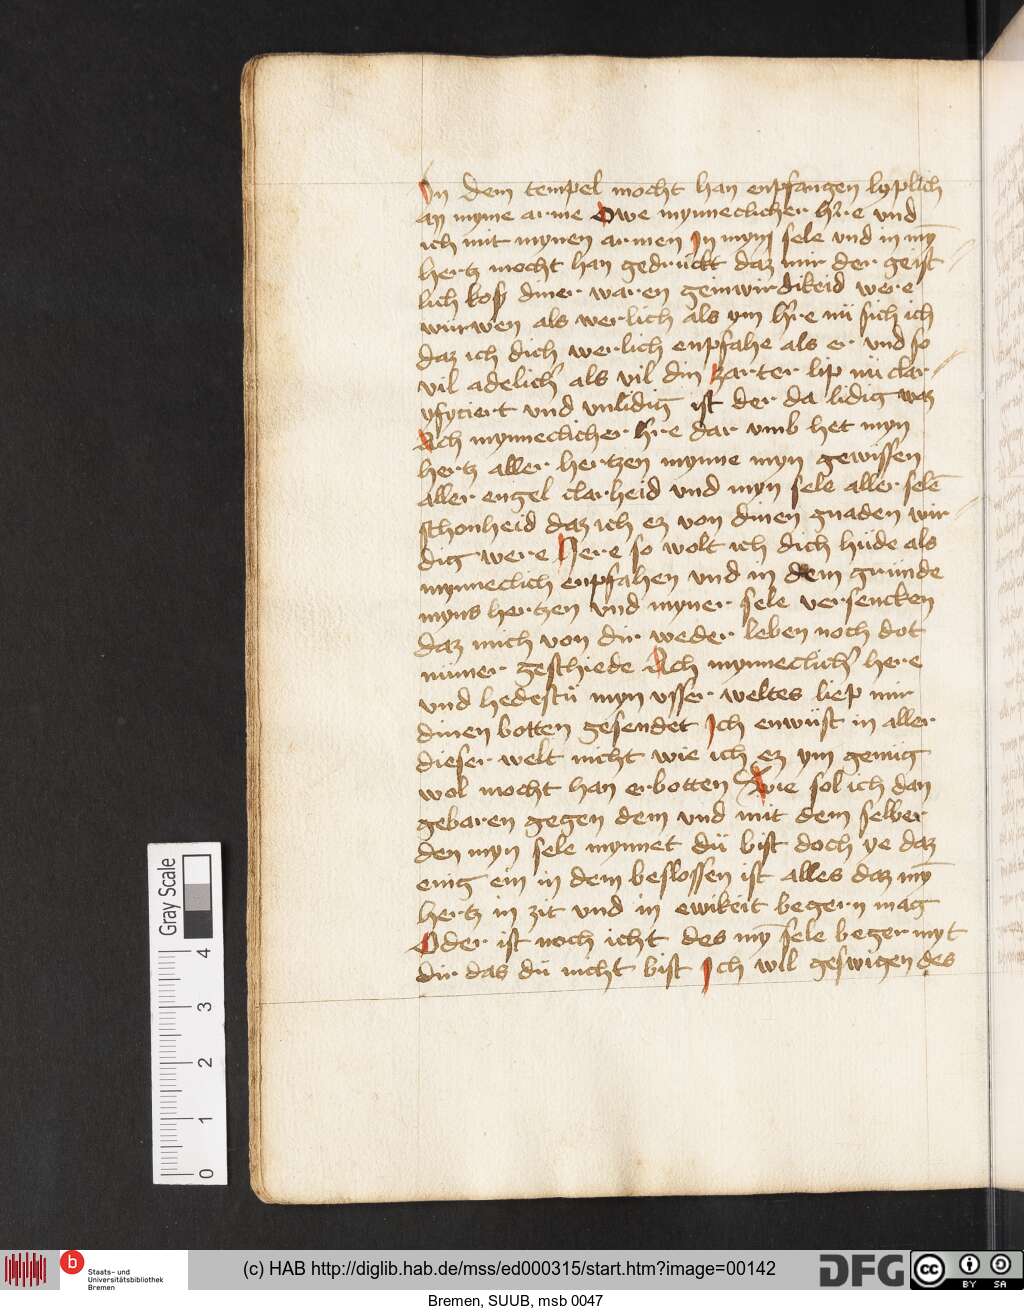 In dem tempel mocht han enpfangen lyplich
an myme arme Owe mynneclicher h're vnd
ich mit mynen armen In myn sele vnd in mȳ
hertz mocht han gedruckt daz mir der geist
lich kosz diner waren geinwirdikeid were
würwen als werlich als ym h're nü sich ich
daz ich dich werlich enpfahe als er vnd so
vil adelich' als vil din zarter lip nü clar
yfyciert vnd vnlidig ist der da lidig waz
Ach mynneclicher h're dar vmb het myn
hertz aller hertzen mynne myn gewissen
aller engel clarheid vnd myn sele aller selē
schonheid daz ich ez von dinen gnaden wir
dig were Here so wolt ich dich hüde als
mynneclich enpfahen vnd in dem gründe
myns hertzen vnd myner sele versencken
daz mich von dir weder leben noch dot
nümer geschiede Ach mynneclich' here
vnd hedestü myn vsser weltes liep mir
dinen botten gesendet Ich enwüst in aller
dieser welt nicht wie ich ez ym genüg
wol mocht han erbotten Wie sol ich dan
gebaren gegen dem vnd mit dem selber
den myn sele mynnet dü bist doch ye daz
einig ein in dem beslossen ist alles daz mȳ
hertz in zit vnd in ewikeit begern mag
Oder ist noch icht des mȳ sele beger myt
dir das dü nicht bist Ich wil geswigen des
Gray Scale
0 1 2 3 4
b
Staats- und
Universitätsbibliothek
Bremen
(c) HAB http://diglib.hab.de/mss/ed000315/start.htm?image=00142
DFG
cc
BY SA
Bremen, SUUB, msb 0047